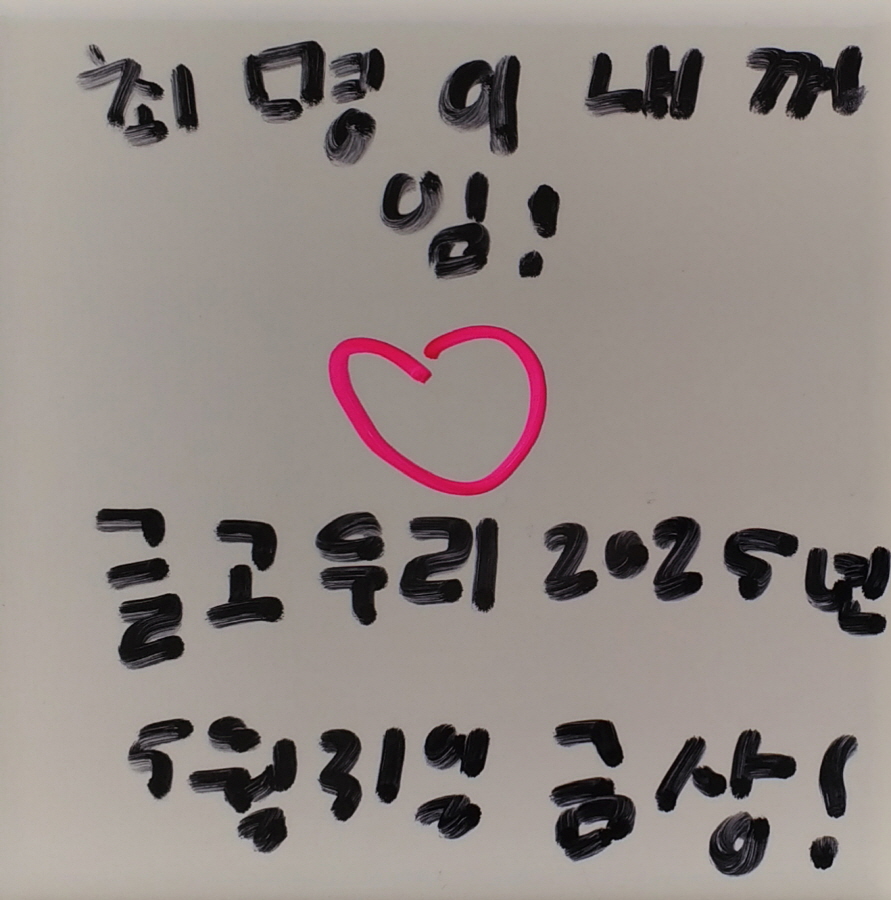 최명이 내꺼
임!
글고우리 2025년
5월31일 금상!